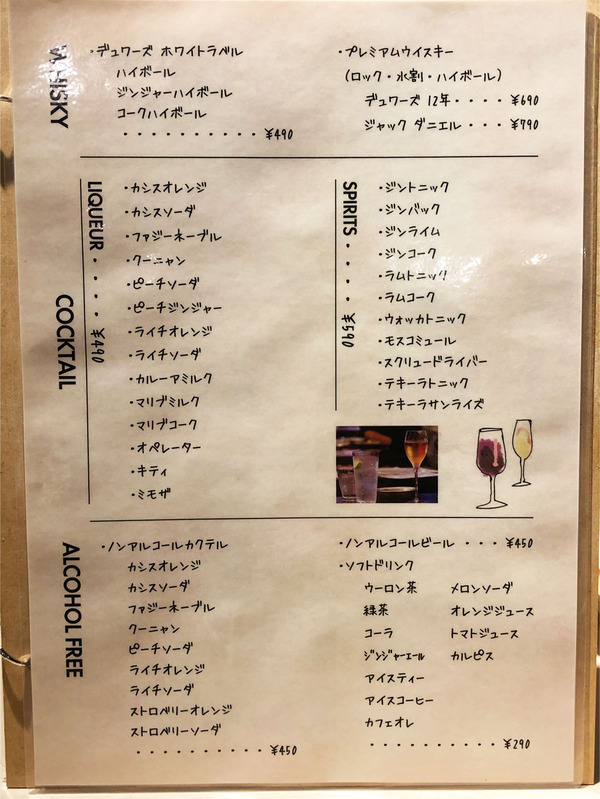 WHISKY
・デュワーズ ホワイトラベル
ハイボール
ジンジャーハイボール
コークハイボール
・・・・・・・・・・¥490
・プレミアムウイスキー
(ロック・水割・ハイボール)
デュワーズ 12年・・・・¥690
ジャック ダニエル・・・¥790
COCKTAIL
LIQUEUR・・・・¥490
・カシスオレンジ
・カシスソーダ
・ファジーネーブル
・クーニャン
・ピーチソーダ
・ピーチジンジャー
・ライチオレンジ
・ライチソーダ
・カルーアミルク
・マリブミルク
・マリブコーク
・オペレーター
・キティ
・ミモザ
SPIRITS・・・・¥590
・ジントニック
・ジンバック
・ジンライム
・ジンコーク
・ラムトニック
・ラムコーク
・ウォッカトニック
・モスコミュール
・スクリュードライバー
・テキーラトニック
・テキーラサンライズ
ALCOHOL FREE
・ノンアルコールカクテル
カシスオレンジ
カシスソーダ
ファジーネーブル
クーニャン
ピーチソーダ
ライチオレンジ
ライチソーダ
ストロベリーオレンジ
ストロベリーソーダ
・・・・・・・・・・¥450
・ノンアルコールビール ・・・¥450
・ソフトドリンク
ウーロン茶 メロンソーダ
緑茶 オレンジジュース
コーラ トマトジュース
ジンジャーエール カルピス
アイスティー
アイスコーヒー
カフェオレ
・・・・・・・・・・¥290